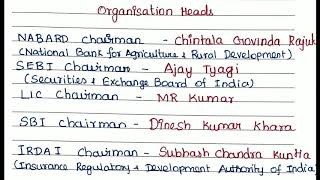 Organisation Heads
NABARD chairman - Chintala Govinda Rajuk
(National Bank for Agriculture & Rural Development)
SEBI Chairman - Ajay Tyagi
(Securities & Exchange Board of India)
LIC Chairman - MR Kumar
SBI chairman - Dinesh Kumar Khara
IRDAI Chairman - Subhash Chandra Kuntia
(Insurance Regulatory & Development Authority of India)